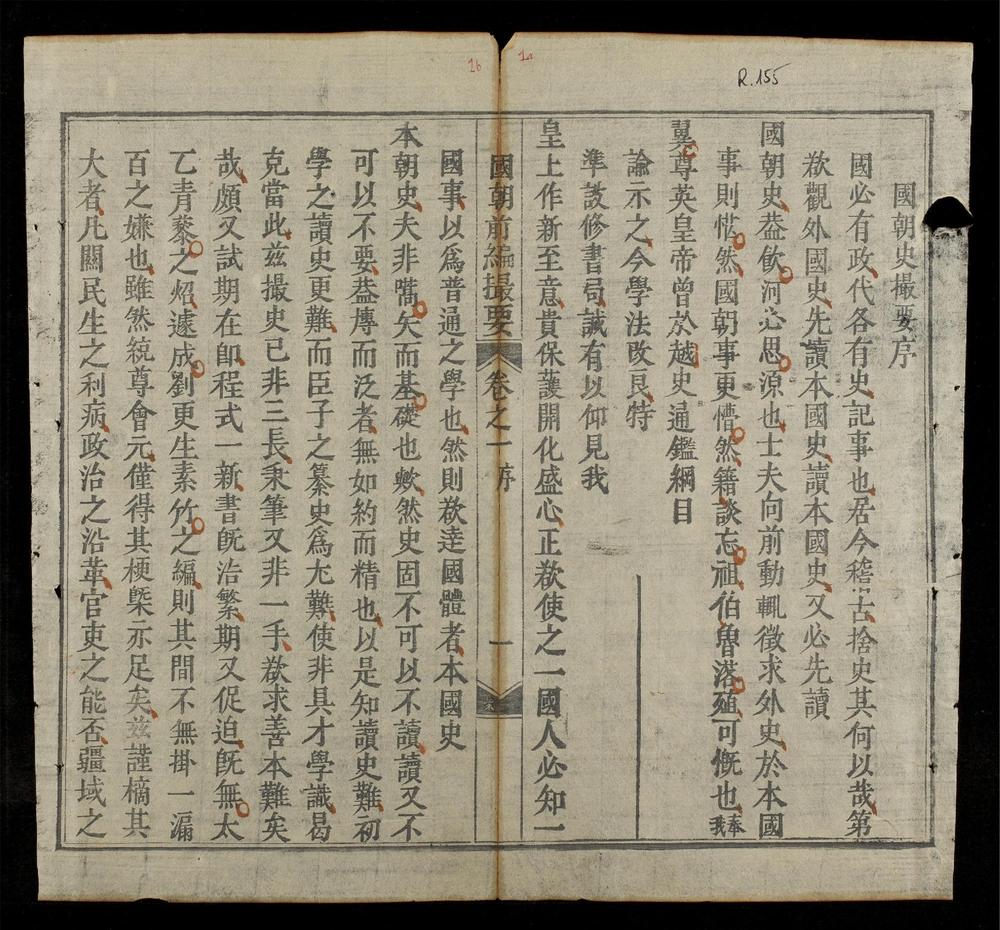 R.155
1a
1b
國朝史撮要序
國必有政代各有史記事也居今稽古捨史其何以哉第
欲觀外國史先讀本國史讀本國史又必先讀
國朝史葢飲河必思源也士夫向前動輒徵求外史於本國
事則惛然國朝事更懵然籍談忘祖伯魯落殖可慨也奉我
翼尊英皇帝曾於越史通鑑綱目
諭示之今學法改良特
準設修書局誠有以仰見我
皇上作新至意貴保護開化盛心正欲使之一國人必知一
國朝前編撮要 卷之一 序 一
國事以爲普通之學也然則欲達國體者本國史
本朝史夫非嚆矢而基礎也歟然史固不可以不讀讀又不
可以不要葢博而泛者無如約而精也以是知讀史難初
學之讀史更難而臣子之纂史爲尤難使非具才學識曷
克當此兹撮史己非三長秉筆又非一手欲求善本難矣
哉頗又試期在卽程式一新書旣浩繁期又促迫旣無太
乙青藜之炤遽成劉更生素竹之編則其間不無掛一漏
百之嫌也雖然統尊會元僅得其梗槩亦足矣兹謹樀其
大者凡關民生之利病政治之沿革官吏之能否疆域之